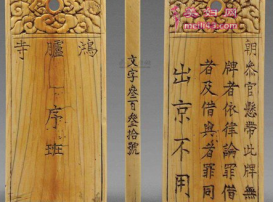 鴻臚寺
序班
文字叄百叄拾號
朝叅官懸帶此牌無
牌者依律論罪借
者及借與者罪同
出京不用